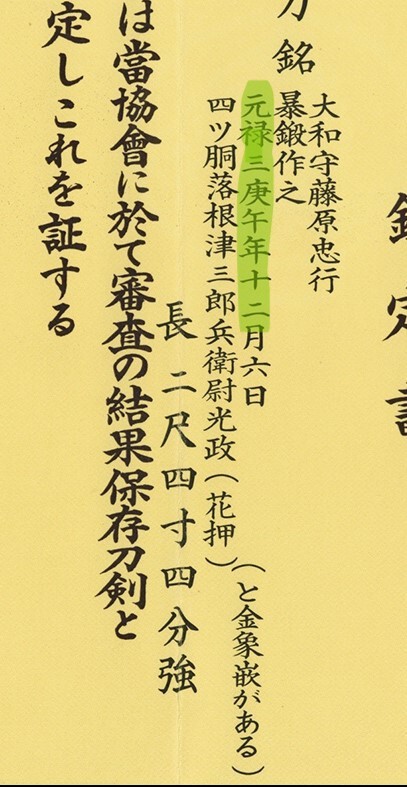 定
刀 銘
大和守藤原忠行
暴鍛作之
元禄三庚午年十二月六日
四ツ胴落根津三郎兵衛尉光政(花押)
(と金象嵌がある)
長二尺四寸四分強
は當協會に於て審査の結果保存刀剣と
定しこれを証する